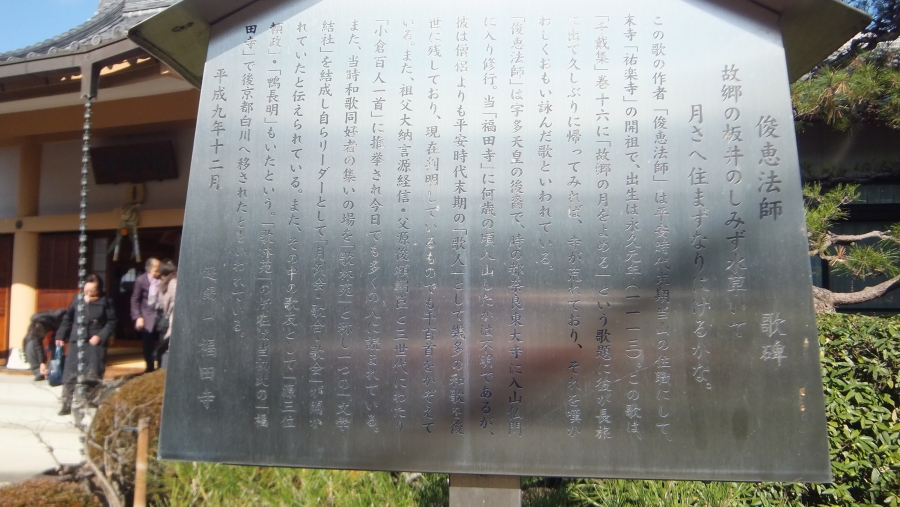 俊恵法師　歌碑
故郷の板井のしみず水草いて
月さへ住まずなりにけるかな。
この歌の作者「俊恵法師」は平安時代末期当山の住職にして、
末寺「祐楽寺」の開祖で、出生は永久元年(一一一三)。この歌は、
「千載集」巻十六に「故郷の月をよめる」という歌題に彼が長旅
に出て久しぶりに帰ってみれば、寺が荒れており、それを嘆か
わしくおもい詠んだ歌といわれている。
「俊恵法師」は宇多天皇の後裔で、時の都奈良東大寺に入山仏門
に入り修行。当「福田寺」に何歳の頃入山したかは不詳であるが、
彼は僧侶よりも平安時代末期の「歌人」として数多の和歌を後
世に残しており、現在判明しているものでも千百首をかぞえて
いる。また、祖父大納言源経信・父源俊頼朝臣と三世代にわたり
「小倉百人一首」に推挙され今日でも多くの人に親しまれている。
また、当時和歌同好者の集いの場を「歌林苑」と称し一つの「文学
結社」を結成し自らリーダーとして「月次会・歌合・歌会」が開か
れていたと伝えられている。また、その中の歌友として「源三位
頼政」・「鴨長明」もいたという。「歌林苑」の所在は当初此の「福
田寺」で後京都白川へ移されたといわれている。
平成九年十二月
福田寺